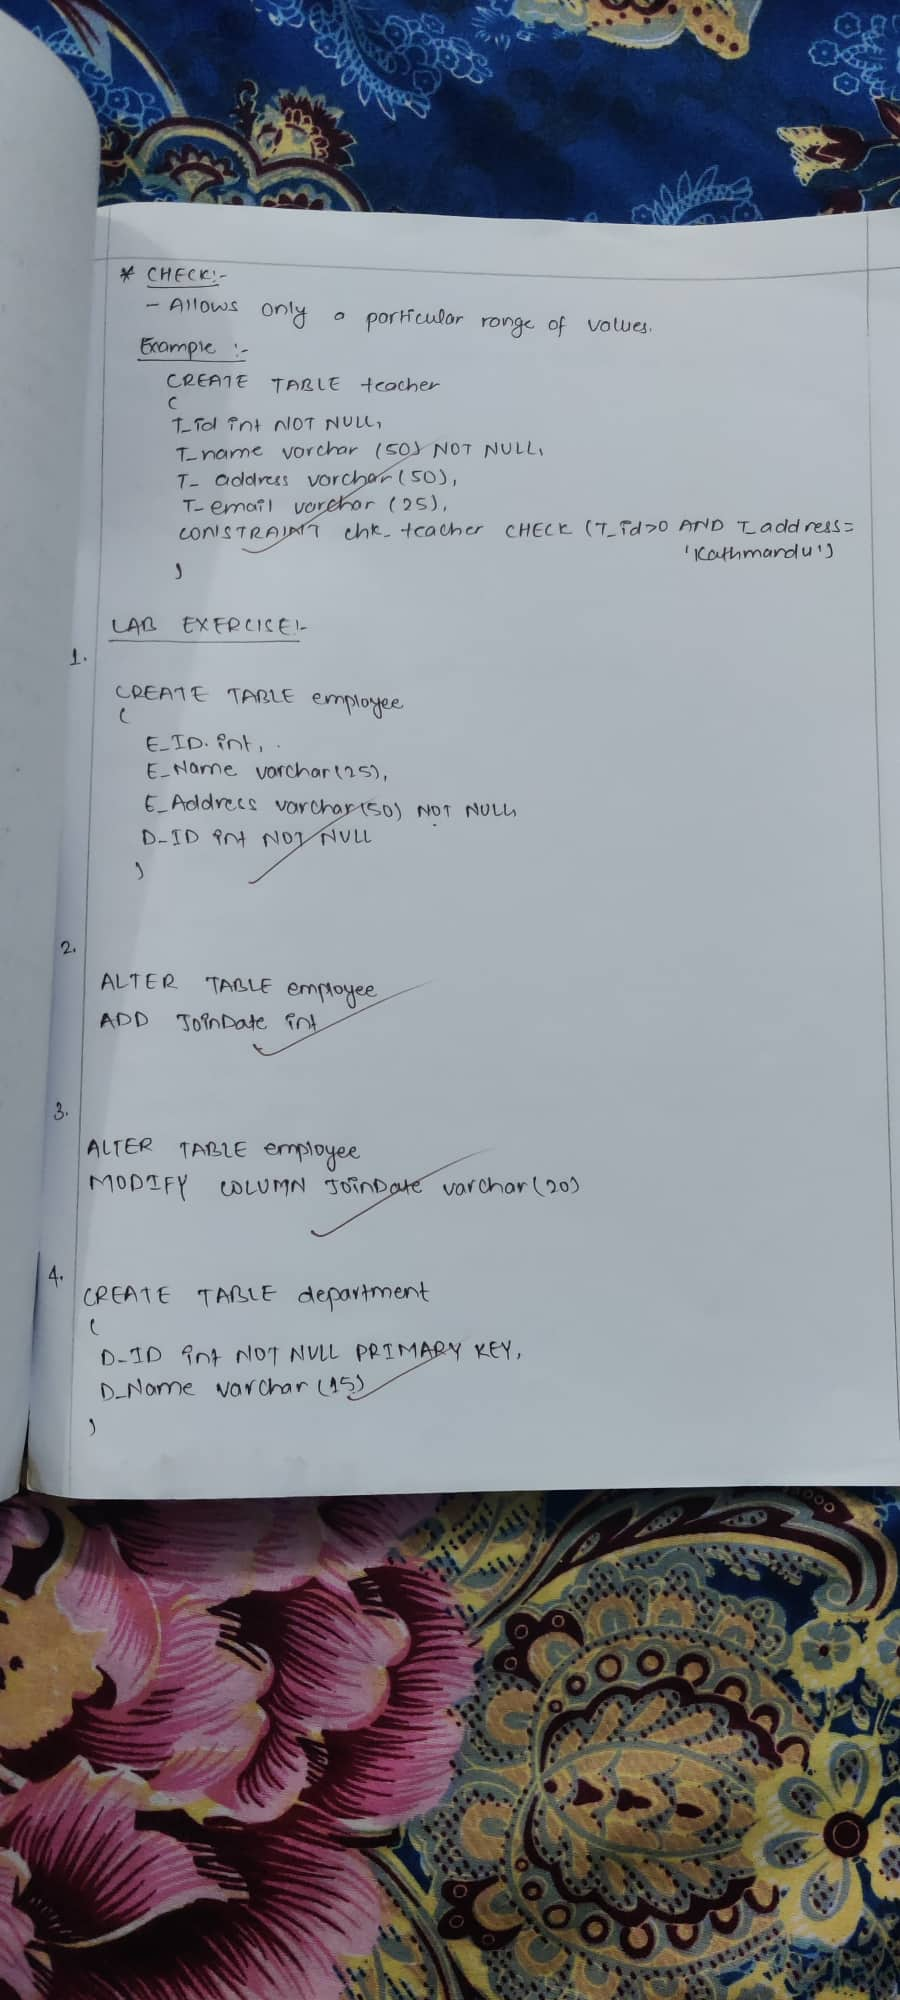 * CHECK:-
- Allows only a particular range of values.
Example :-
CREATE TABLE teacher
(
T_id int NOT NULL,
T_name varchar (50) NOT NULL,
T_ address varchar (50),
T_email varchar (25),
CONSTRAINT chk_teacher CHECK (T_id>0 AND T_address=
'Kathmandu')
)
LAB EXERCISE:-
1.
CREATE TABLE employee
(
E_ID int,
E_Name varchar(25),
E_Address varchar(50) NOT NULL,
D_ID int NOT NULL
)
2.
ALTER TABLE employee
ADD JoinDate int
3.
ALTER TABLE employee
MODIFY COLUMN JoinDate varchar(20)
4.
CREATE TABLE department
(
D_ID int NOT NULL PRIMARY KEY,
D_Name varchar (15)
)